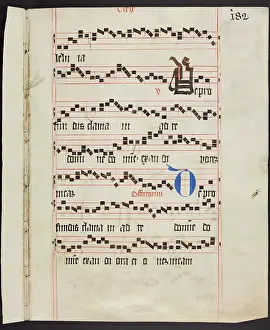 182
leluia
V epro
fundis clama ui ad te
domine domine exaudi voces
meas Offertorium De pro
fundis clamaui ad te domine do
mine exaudi oracionem meam